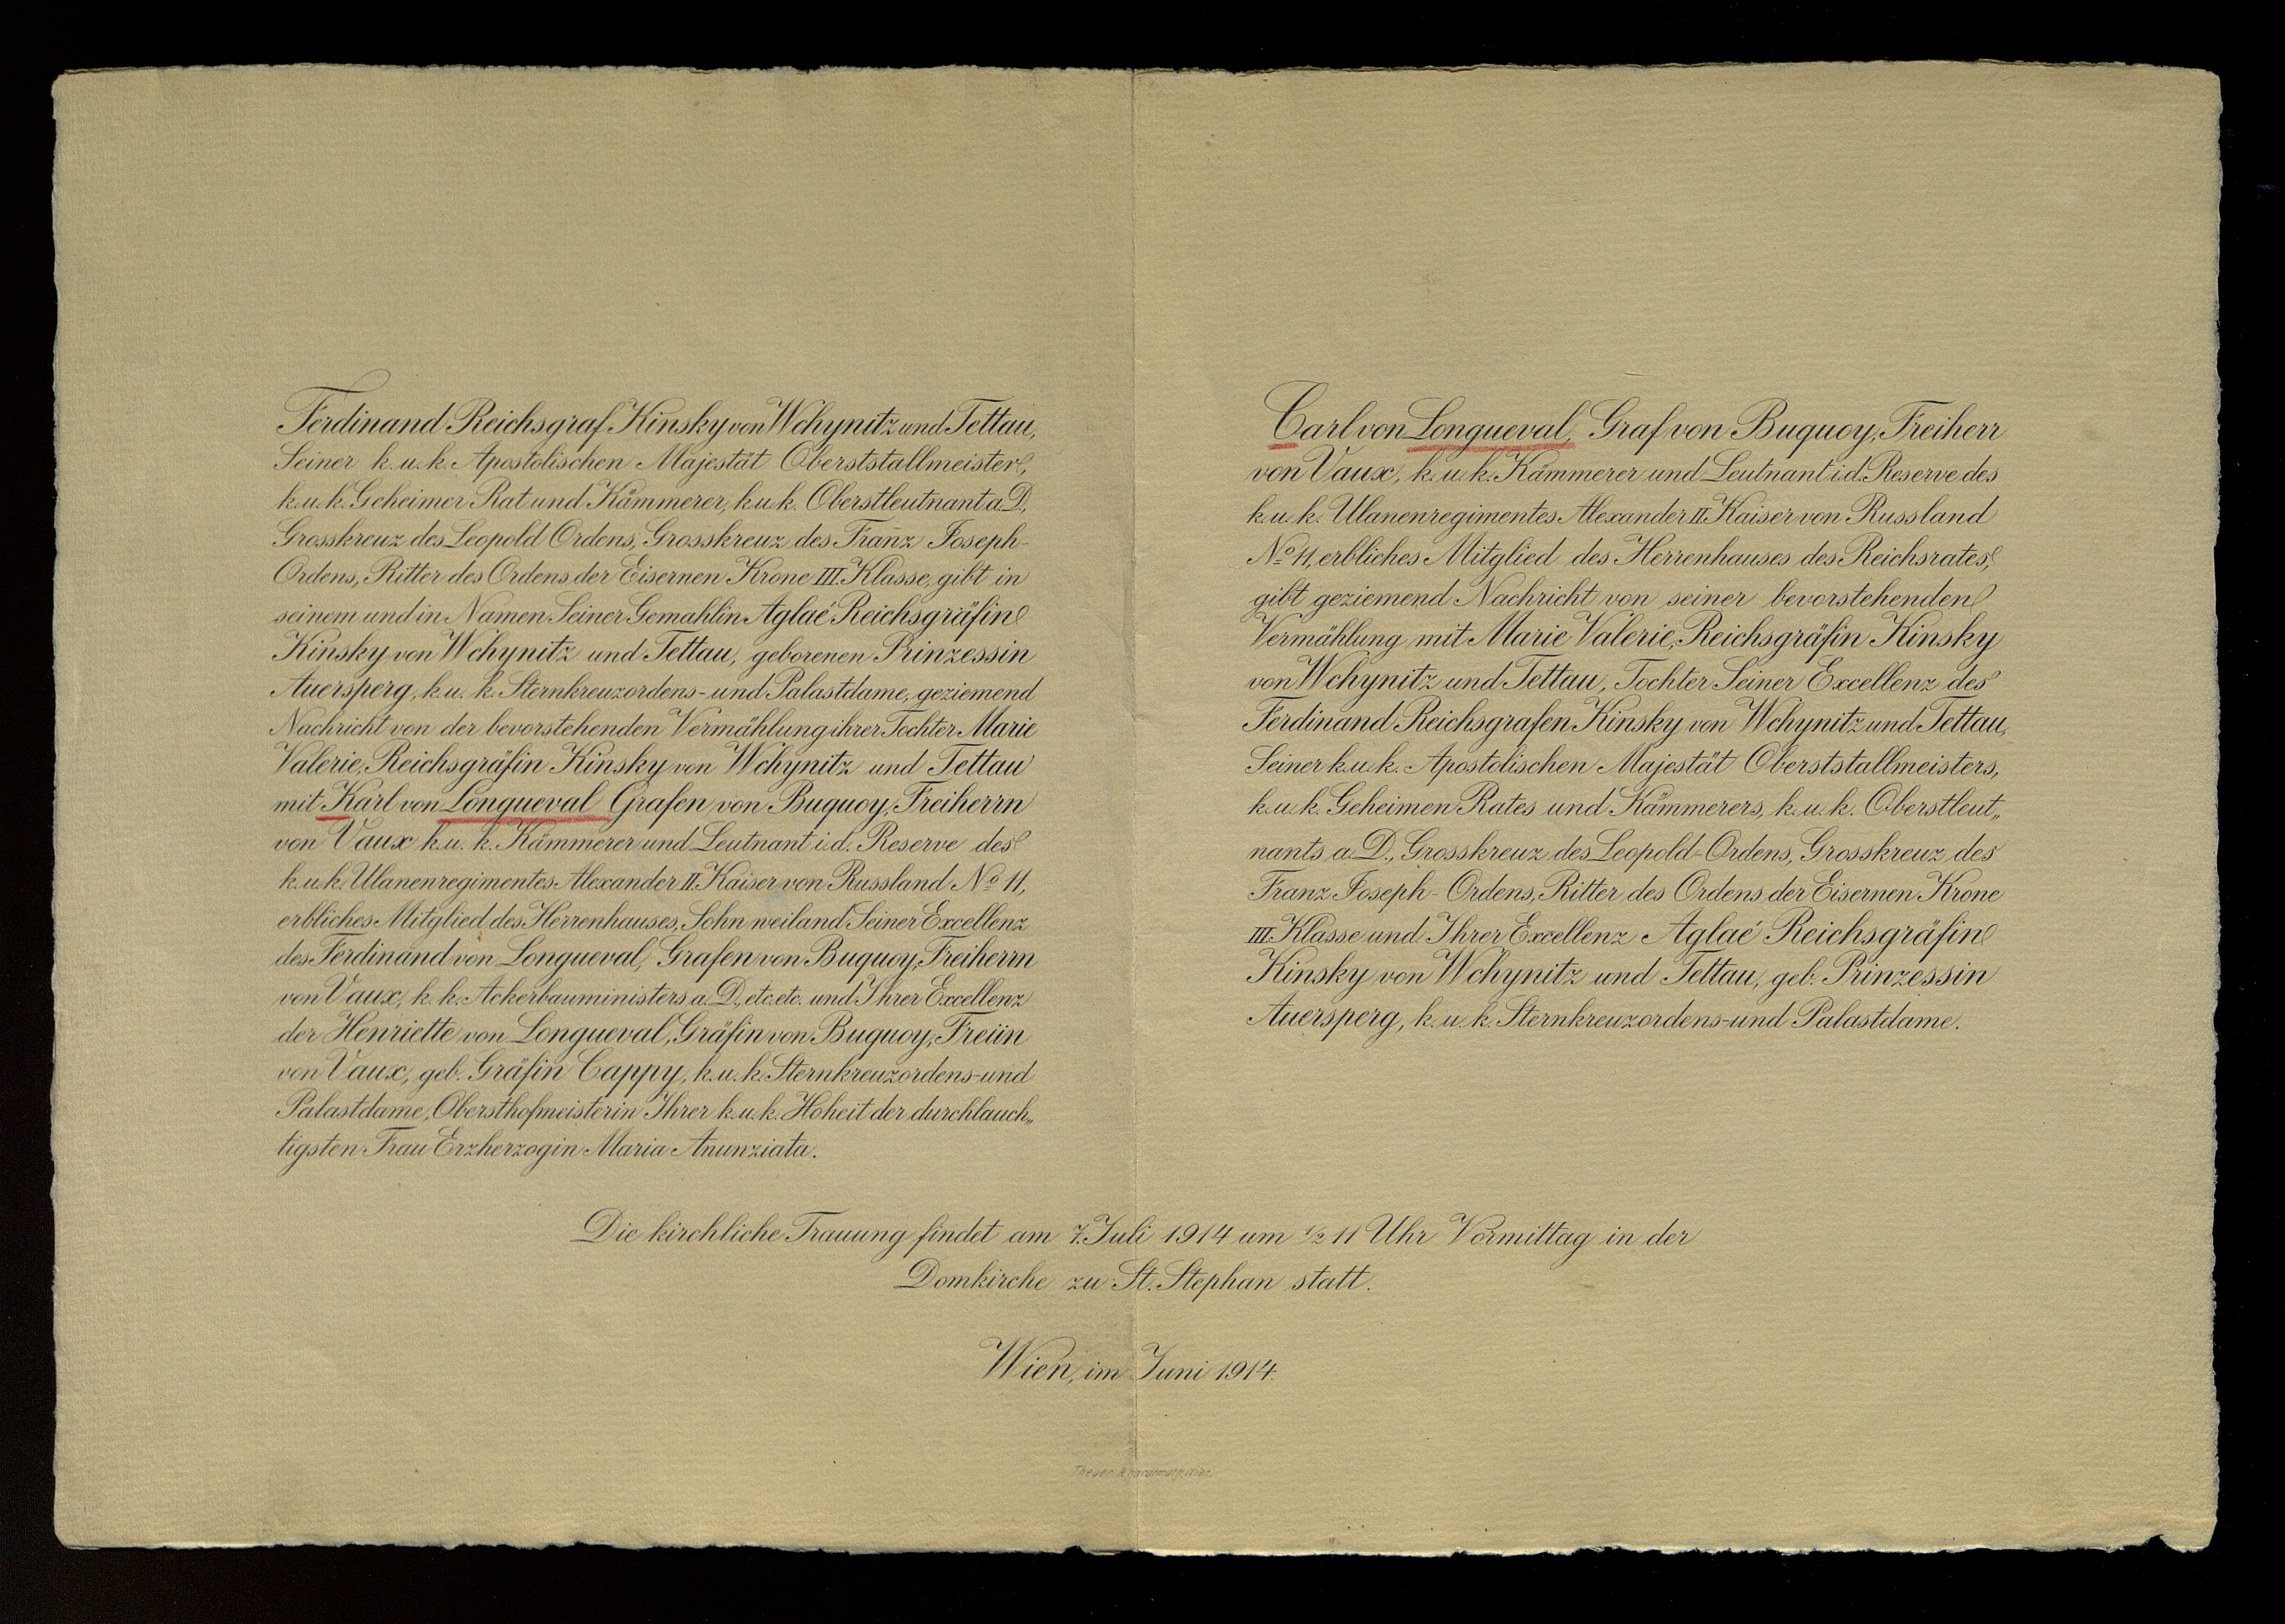 Ferdinand Reichsgraf Kinsky von Wchynitz und Tettau,
Seiner k. u. k. Apostolischen Majestät Oberststallmeister,
k. u. k. Geheimer Rat und Kämmerer, k. u. k. Oberstleutnant a. D.,
Grosskreuz des Leopold Ordens, Grosskreuz des Franz Joseph-
Ordens, Ritter des Ordens der Eisernen Krone III. Klasse, gibt in
seinem und in Namen Seiner Gemahlin Aglaë Reichsgräfin
Kinsky von Wchynitz und Tettau, geborenen Prinzessin
Auersperg, k. u. k. Sternkreuzordens- und Palastdame, geziemend
Nachricht von der bevorstehenden Vermählung ihrer Tochter Marie
Valerie, Reichsgräfin Kinsky von Wchynitz und Tettau
mit Karl von Longueval Grafen von Buquoy, Freiherrn
von Vaux k. u. k. Kämmerer und Leutnant i. d. Reserve des
k. u. k. Ulanenregimentes Alexander II. Kaiser von Russland No 11,
erbliches Mitglied des Herrenhauses, Sohn weiland Seiner Excellenz
des Ferdinand von Longueval, Grafen von Buquoy, Freiherrn
von Vaux, k. k. Ackerbauministers a. D., etc. etc. und Ihrer Excellenz
der Henriette von Longueval, Gräfin von Buquoy, Freiin
von Vaux, geb. Gräfin Cappy, k. u. k. Sternkreuzordens- und
Palastdame, Obersthofmeisterin Ihrer k. u. k. Hoheit der durchlauch„
tigsten Frau Erzherzogin Maria Anunziata.
Carl von Longueval, Graf von Buquoy, Freiherr
von Vaux, k. u. k. Kämmerer und Leutnant i. d. Reserve des
k. u. k. Ulanenregimentes Alexander II. Kaiser von Russland
No 11, erbliches Mitglied des Herrenhauses des Reichsrates,
gibt geziemend Nachricht von seiner bevorstehenden
Vermählung mit Marie Valerie, Reichsgräfin Kinsky
von Wchynitz und Tettau, Tochter Seiner Excellenz des
Ferdinand Reichsgrafen Kinsky von Wchynitz und Tettau,
Seiner k. u. k. Apostolischen Majestät Oberststallmeisters,
k. u. k. Geheimen Rates und Kämmerers, k. u. k. Oberstleut„
nants a. D., Grosskreuz des Leopold-Ordens, Grosskreuz des
Franz Joseph-Ordens, Ritter des Ordens der Eisernen Krone
III. Klasse und Ihrer Excellenz Aglaë Reichsgräfin
Kinsky von Wchynitz und Tettau, geb. Prinzessin
Auersperg, k. u. k. Sternkreuzordens- und Palastdame.
Die kirchliche Trauung findet am 7. Juli 1914 um ½ 11 Uhr Vormittag in der
Domkirche zu St. Stephan statt.
Wien, im Juni 1914.